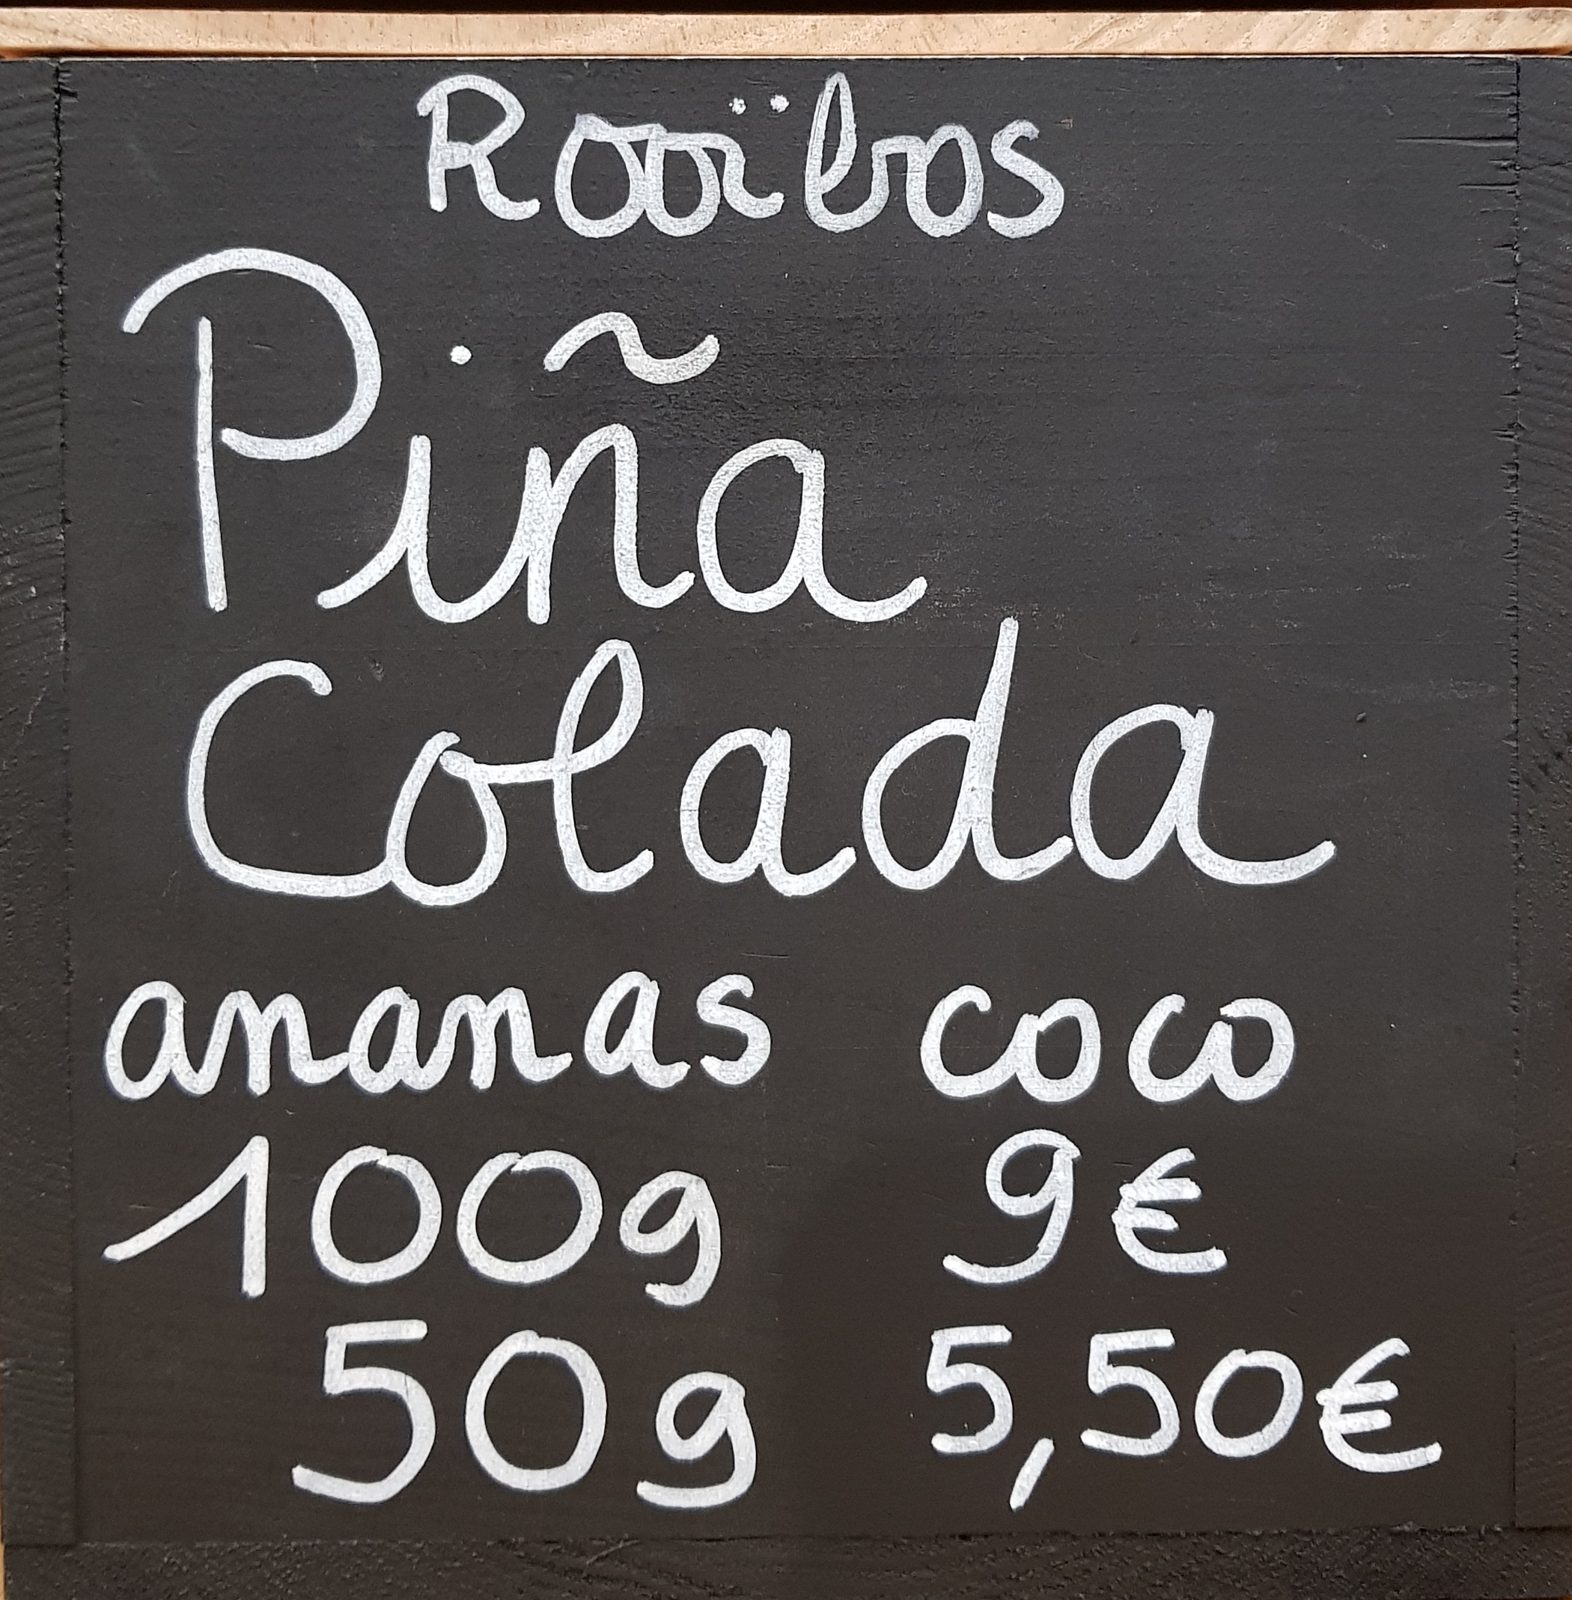 Rooïbos
Piña
Colada
ananas coco
100g 9€
50g 5,50€